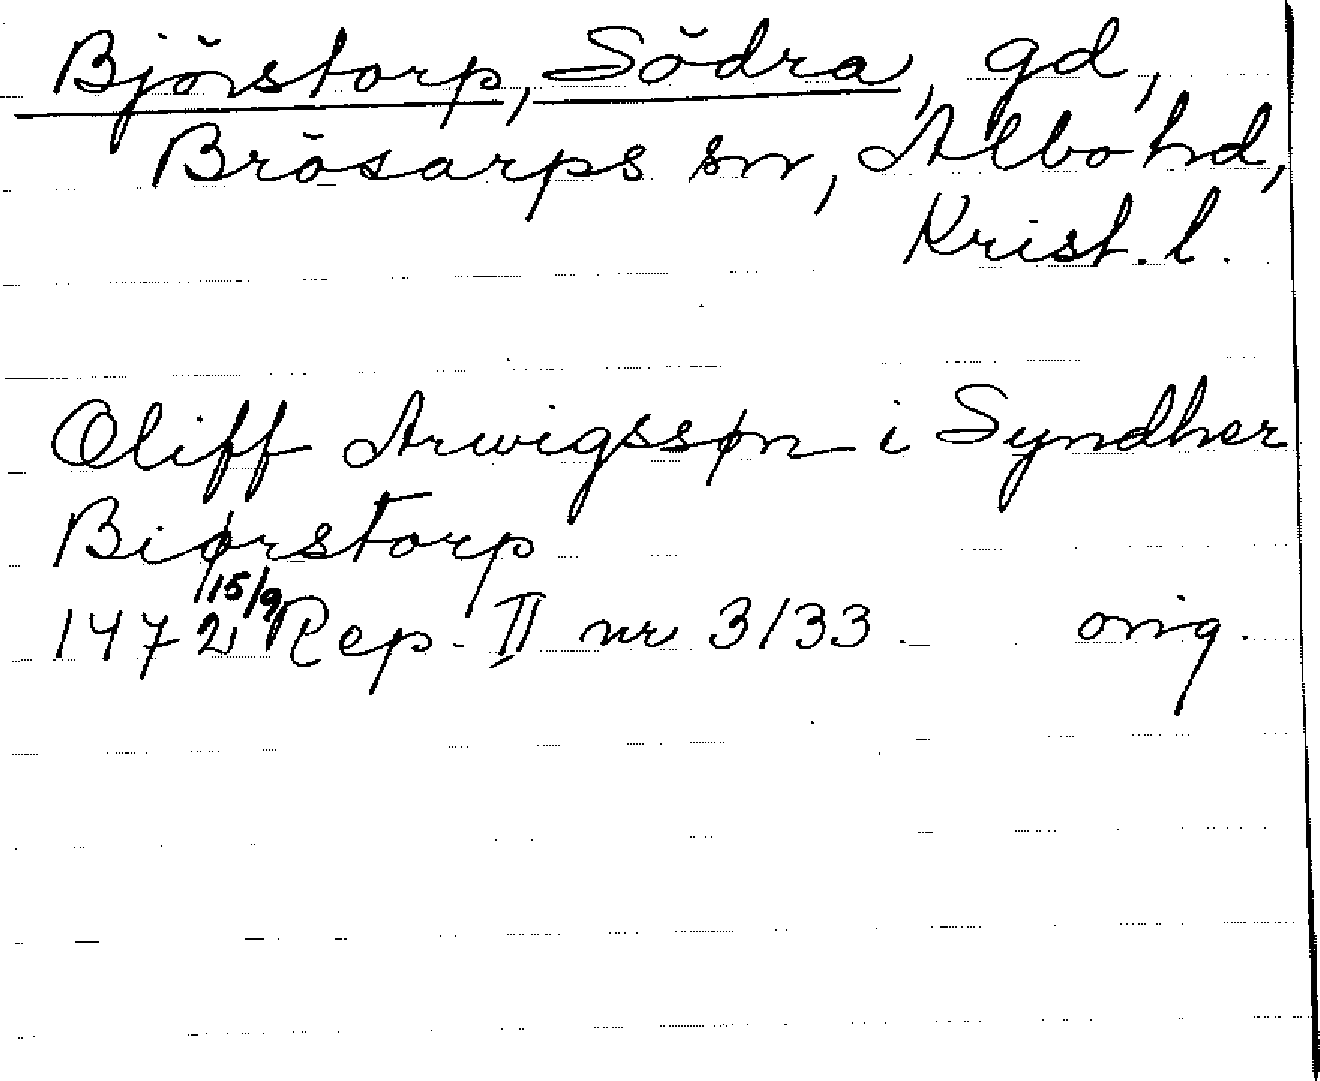 Björstorp, Södra, gd,
Brösarps sn, Albo hd,
Krist. l.
Oliff Arwigssøn i Syndher
Biørstorp
1472 15/9 Rep. II nr 3133 orig.